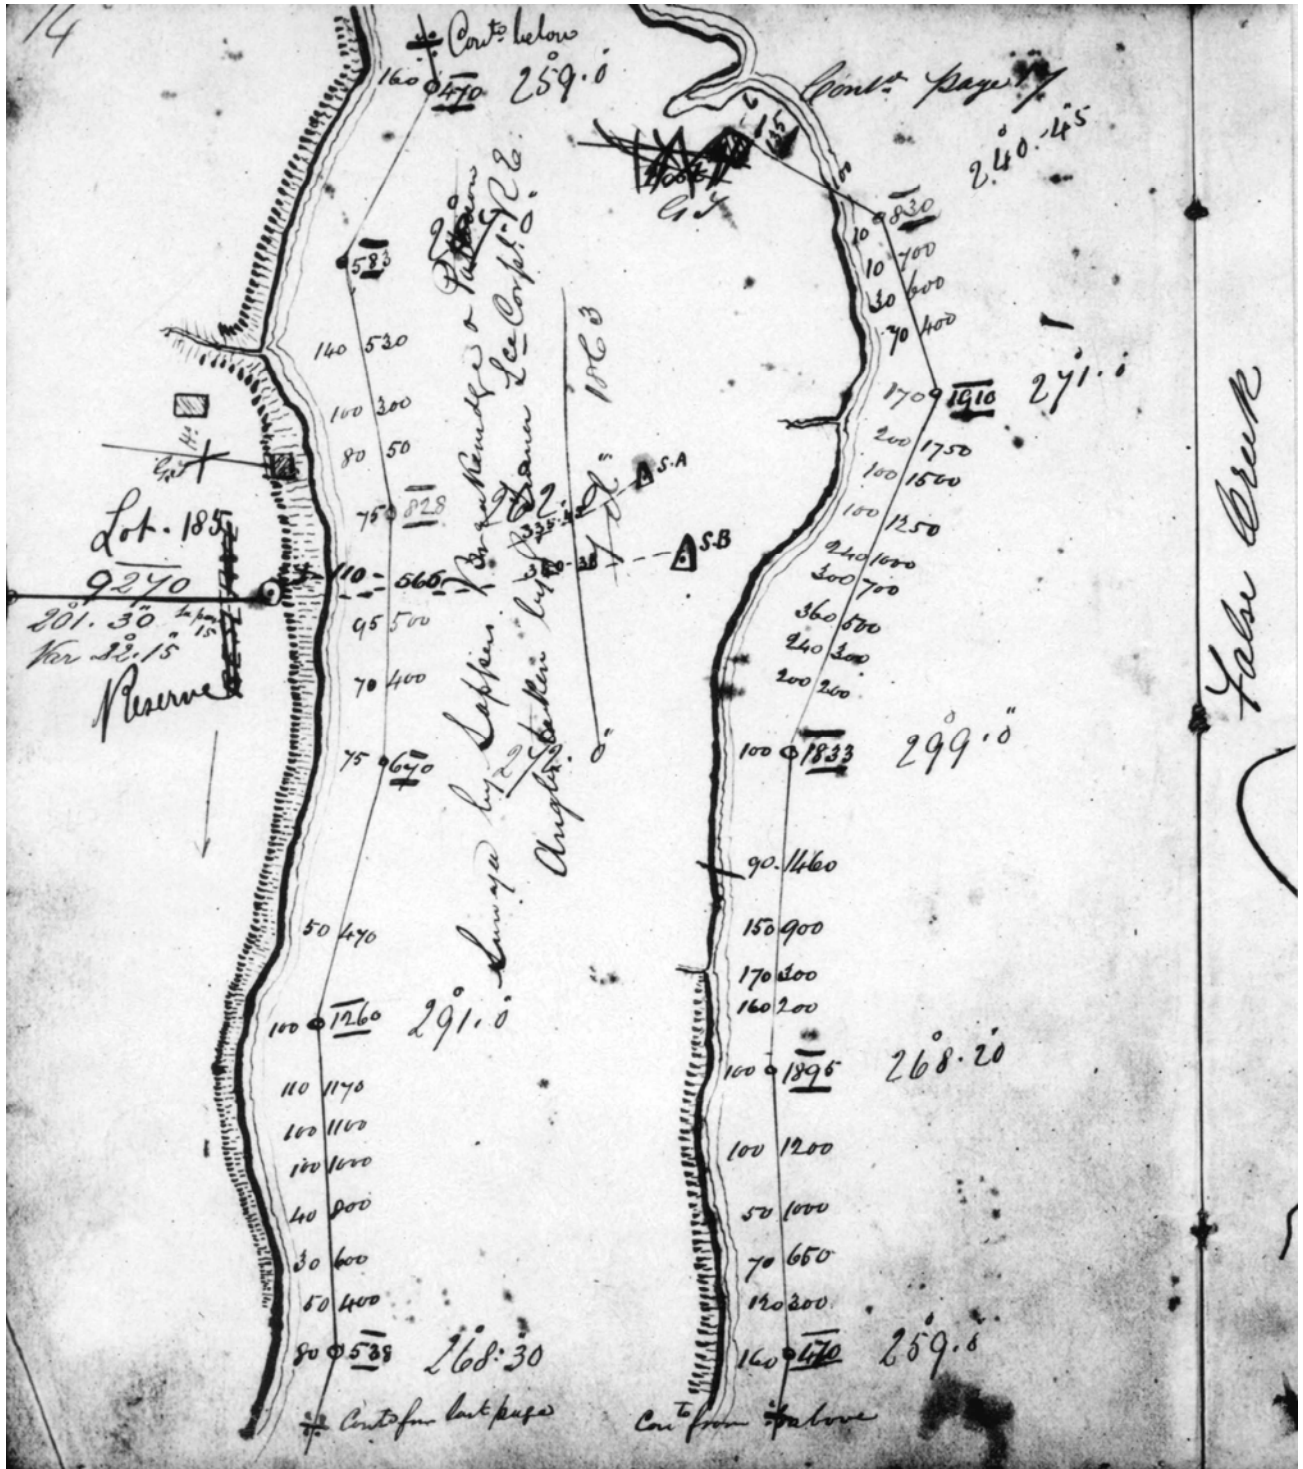 14
Cont^d below
160 470 259.0
583
140 530
100 300
80 50
75 828 262.0
110 - 565
95 500
70 400
75 670 272.0
50 470
100 1260 291.0
110 1170
100 1100
100 1000
40 800
30 600
50 400
80 538 268.30
Cont^d from last page
H.
Lot. 185
9270
201.30
Var 22.15
Reserve
Surveyed by Sappers Breakenridge &
Angles taken by Lce Corp^l R E.
1863
S.A
S.B
G T
15
Cont^d page 17
240.45
100
10 830
10 700
30 600
70 400
170 1910 271.0
200 1750
100 1500
100 1250
240 1000
300 700
360 500
240 300
200 200
100 1833 299.0
90 1460
150 900
170 300
160 200
100 1895 268.20
100 1200
50 1000
70 650
120 300
160 470 259.0
Cont^d from above
False Creek